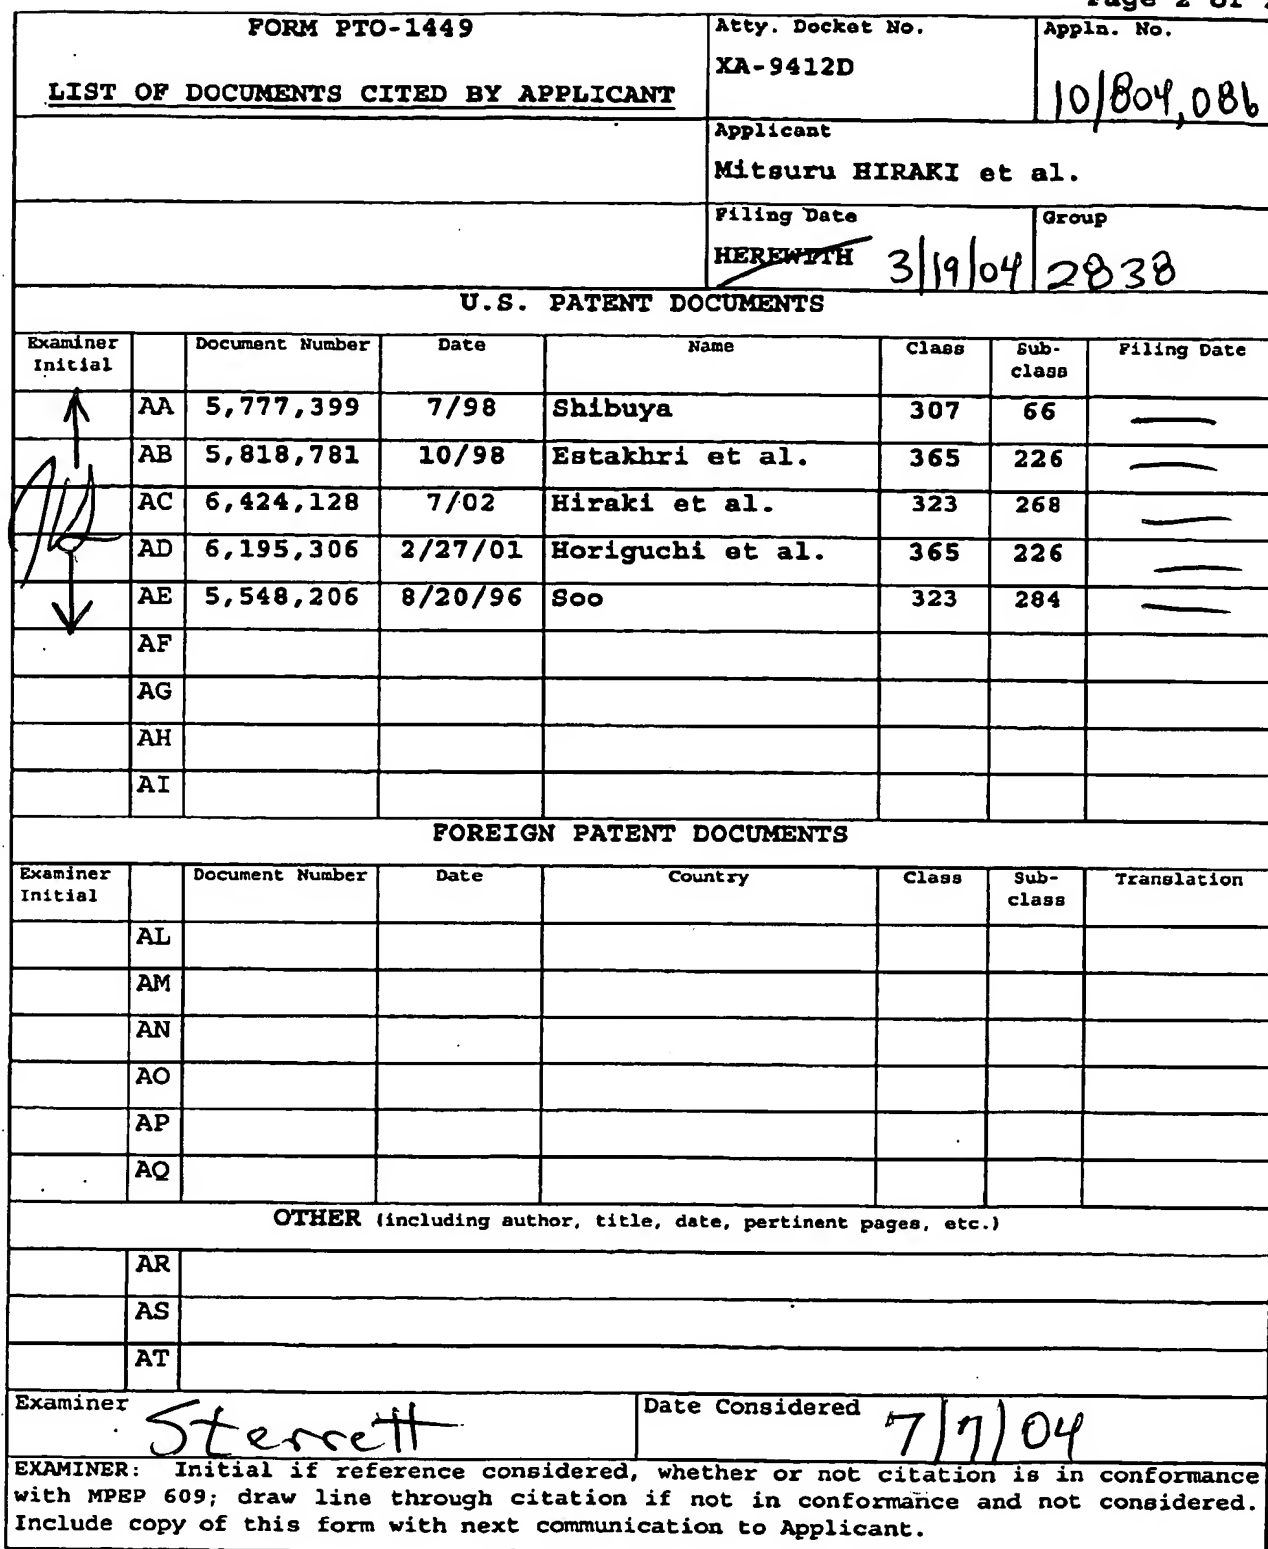 Page 2 of
FORM PTO-1449
LIST OF DOCUMENTS CITED BY APPLICANT
Atty. Docket No.
XA-9412D
Appln. No.
10/804,086
Applicant
Mitsuru HIRAKI et al.
Filing Date
HEREWITH 3/19/04
Group
2838
U.S. PATENT DOCUMENTS
Examiner Initial Document Number Date Name Class Sub-class Filing Date
AA 5,777,399 7/98 Shibuya 307 66 —
AB 5,818,781 10/98 Estakhri et al. 365 226 —
AC 6,424,128 7/02 Hiraki et al. 323 268 —
AD 6,195,306 2/27/01 Horiguchi et al. 365 226 —
AE 5,548,206 8/20/96 Soo 323 284 —
AF
AG
AH
AI
FOREIGN PATENT DOCUMENTS
Examiner Initial Document Number Date Country Class Sub-class Translation
AL
AM
AN
AO
AP
AQ
OTHER (including author, title, date, pertinent pages, etc.)
AR
AS
AT
Examiner Sterrett
Date Considered 7/7/04
EXAMINER: Initial if reference considered, whether or not citation is in conformance
with MPEP 609; draw line through citation if not in conformance and not considered.
Include copy of this form with next communication to Applicant.